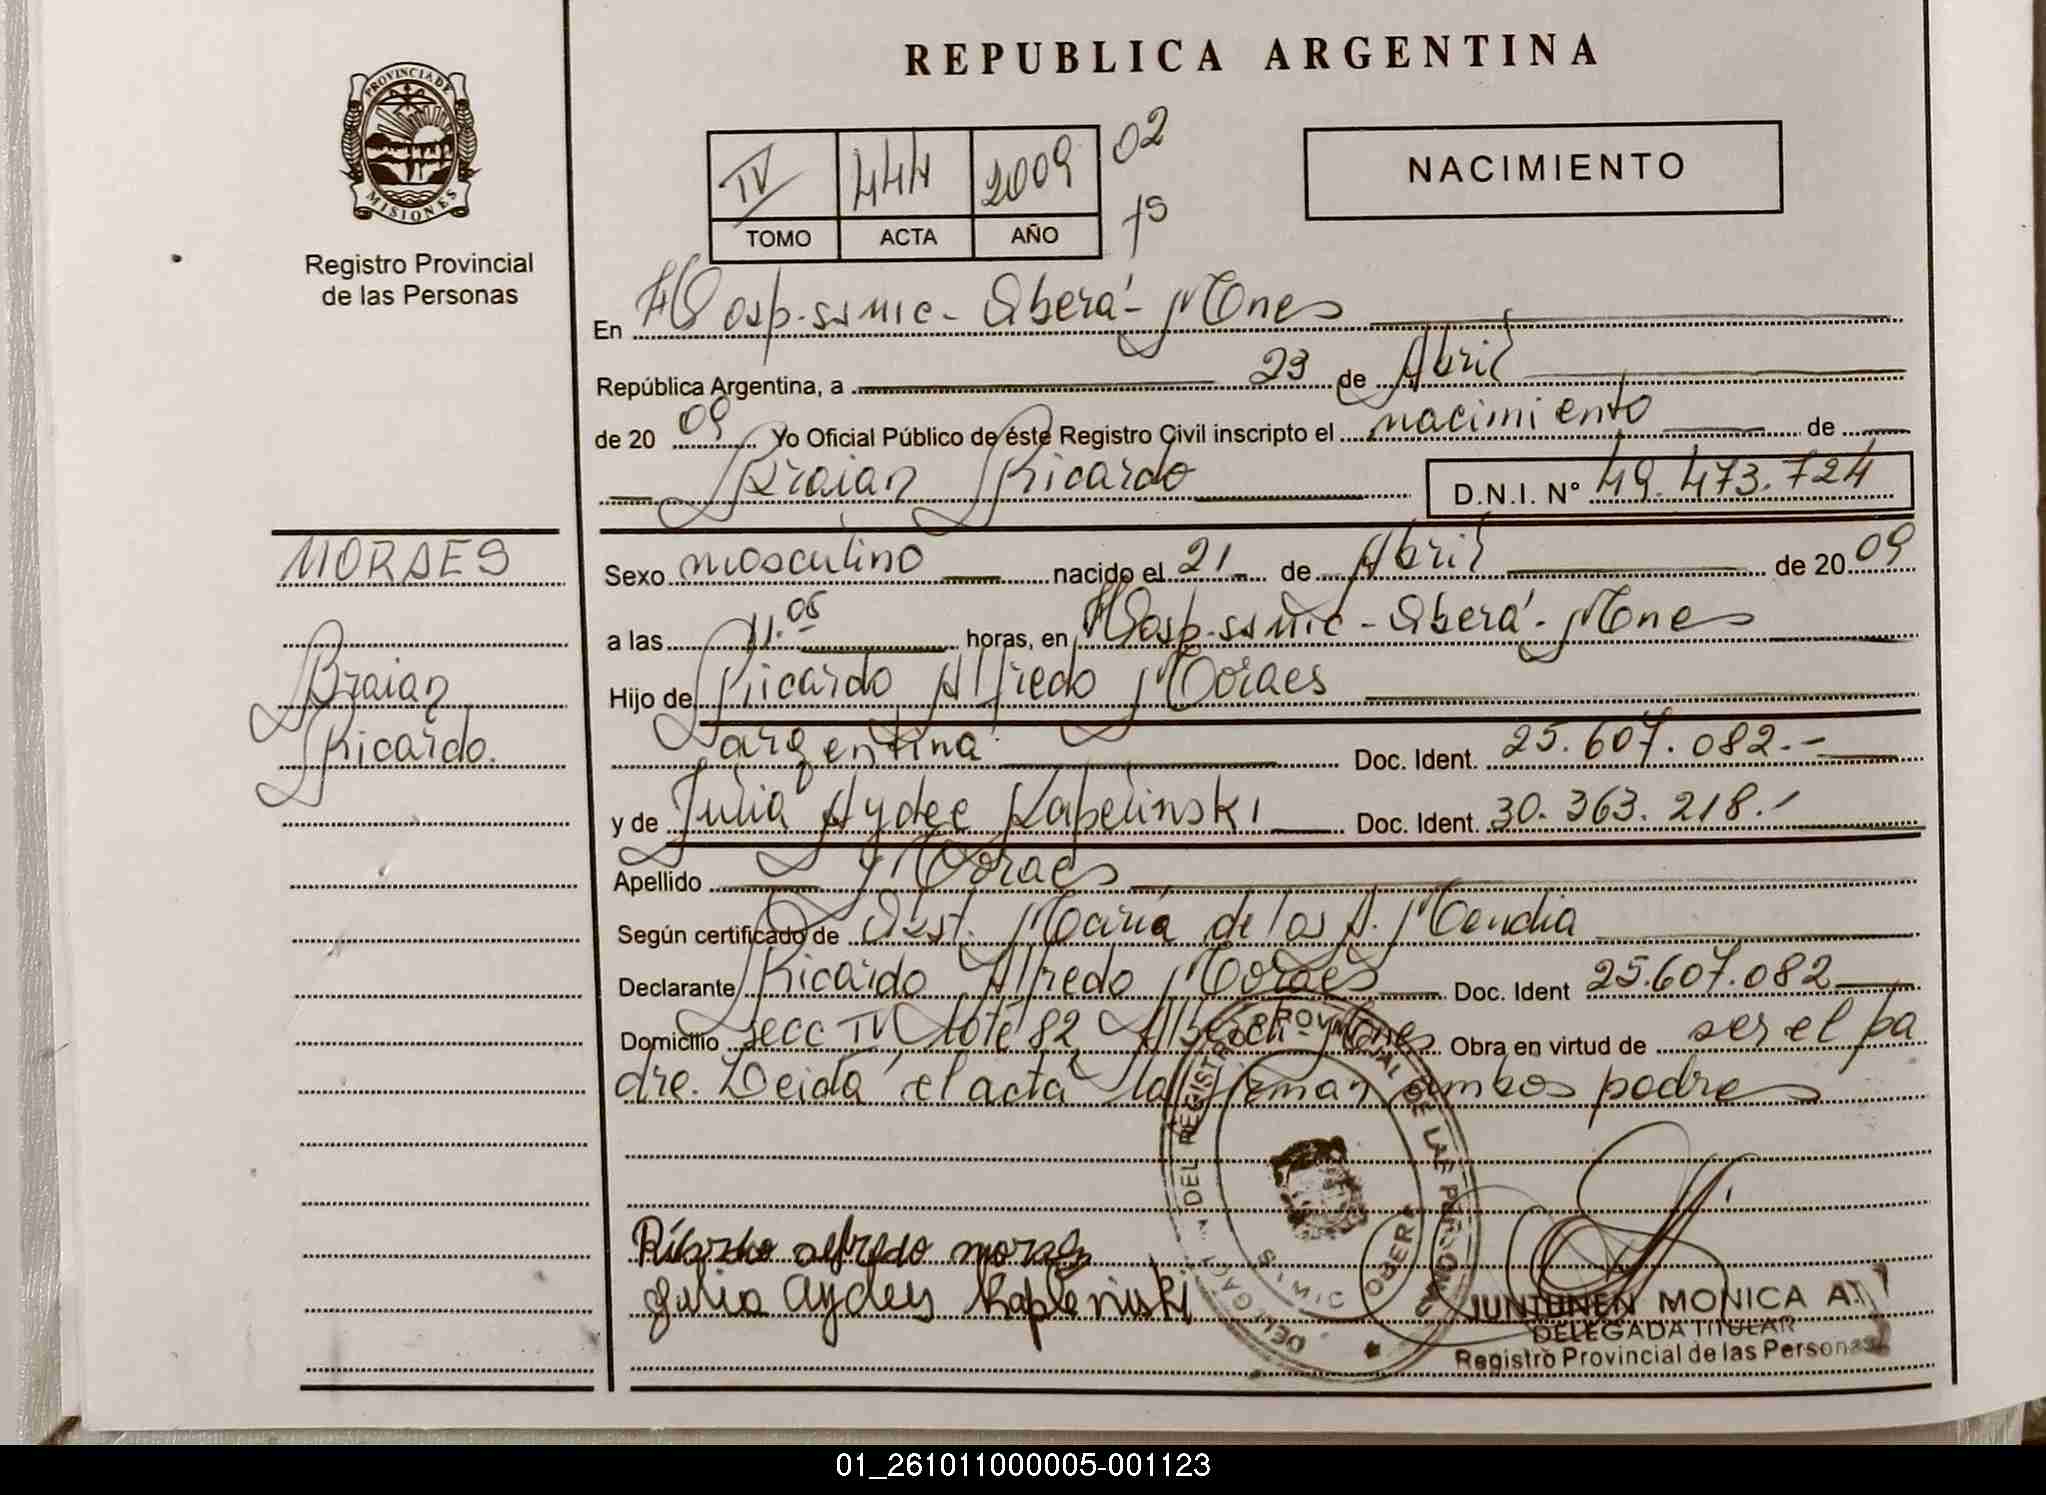 REPUBLICA ARGENTINA
PROVINCIA DE
MISIONES
Registro Provincial
de las Personas
IV 444 2009 02
TOMO ACTA AÑO 15
NACIMIENTO
En Hosp. ssmic - Oberá - Mnes
República Argentina, a 23 de Abril
de 20 09 Yo Oficial Público de éste Registro Civil inscripto el nacimiento de
Braian Ricardo D.N.I. N° 49.473.724
MORAES
Braian
Ricardo.
Sexo masculino nacido el 21 de Abril de 20 09
a las 11.05 horas, en Hosp. ssmic - Oberá - Mnes
Hijo de Ricardo Alfredo Moraes
argentina Doc. Ident. 25.607.082.-
y de Julia Aydee Kapelinski Doc. Ident. 30.363.218.-
Apellido Moraes
Según certificado de Obst. María de los A. Mendia
Declarante Ricardo Alfredo Moraes Doc. Ident 25.607.082
Domicilio secc IV lote 82 Alberdi Mnes Obra en virtud de ser el pa
dre. Leida el acta la firman ambos padres
DELEGACION DEL REGISTRO PROVINCIAL DE LAS PERSONAS
SIMIC OBERA
Ricardo alfredo moraes
Julia Aydey Kapleniski
JUNTUNEN MONICA A.
DELEGADA TITULAR
Registro Provincial de las Personas
01_261011000005-001123